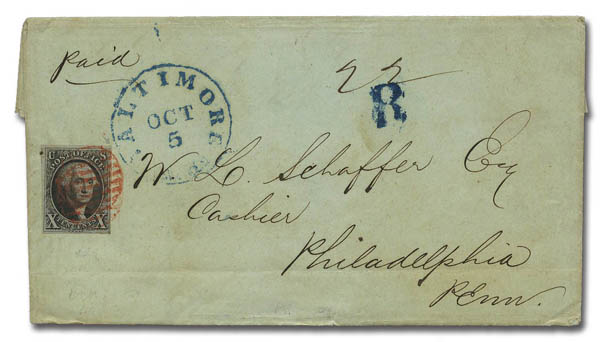 Paid
22
BALTIMORE
OCT
5
R
U S
POST OFFICE
X TEN CENTS X
W. L. Schaffer Esq
Cashier
Philadelphia
Penn.